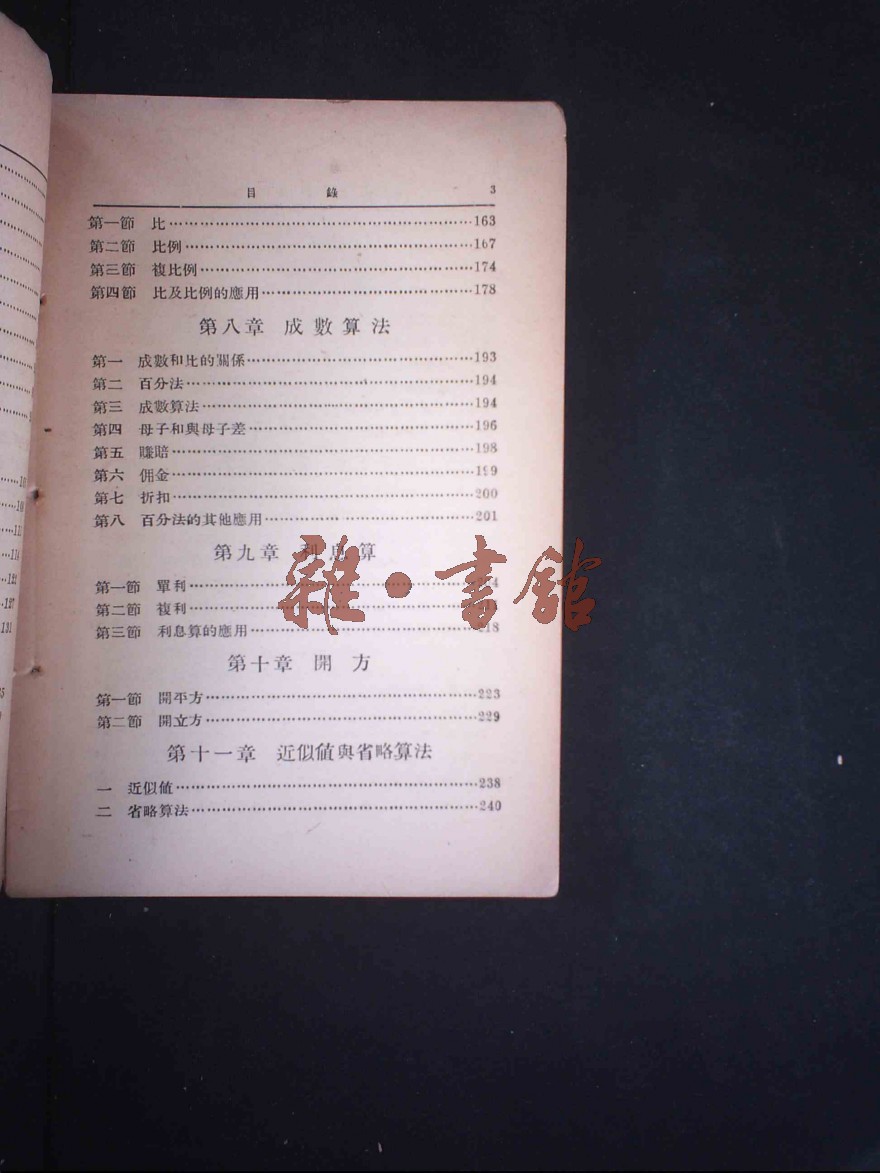 目錄 3
第一節 比…………163
第二節 比例…………167
第三節 複比例…………174
第四節 比及比例的應用…………178
第八章 成數算法
第一 成數和比的關係…………193
第二 百分法…………194
第三 成數算法…………194
第四 母子和與母子差…………196
第五 賺賠…………198
第六 佣金…………199
第七 折扣…………200
第八 百分法的其他應用…………201
第九章 利息算
第一節 單利…………
第二節 複利…………
第三節 利息算的應用…………218
第十章 開方
第一節 開平方…………223
第二節 開立方…………229
第十一章 近似值與省略算法
一 近似值…………238
二 省略算法…………240
雜·書館